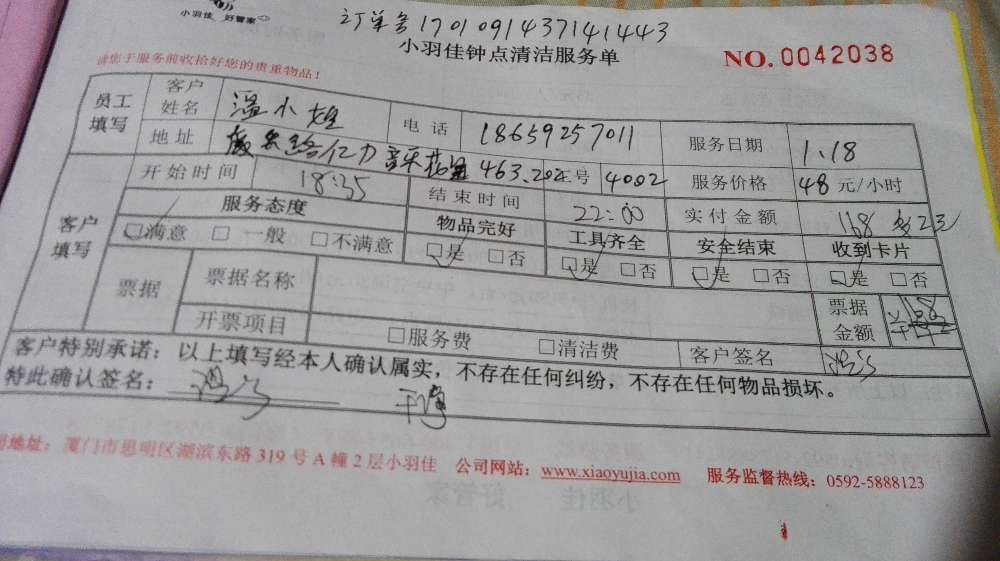 小羽佳 好管家
订单号17010914371441443
小羽佳钟点清洁服务单
NO.0042038
请您于服务前收拾好您的贵重物品！
员工填写 客户姓名 温小姐 电话 18659257011 服务日期 1.18
地址 亿力音乐花园463.202 号 4002 服务价格 48 元/小时
客户填写 开始时间 18:35 结束时间 22:00 实付金额 168
服务态度 物品完好 工具齐全 安全结束 收到卡片
□满意 □一般 □不满意 □是 □否 □是 □否 □是 □否 □是 □否
票据 票据名称 票据金额 168
开票项目 □服务费 □清洁费 客户签名
客户特别承诺：以上填写经本人确认属实，不存在任何纠纷，不存在任何物品损坏。
特此确认签名：
地址：厦门市思明区湖滨东路319号A幢2层小羽佳 公司网站：www.xiaoyujia.com 服务监督热线：0592-5888123